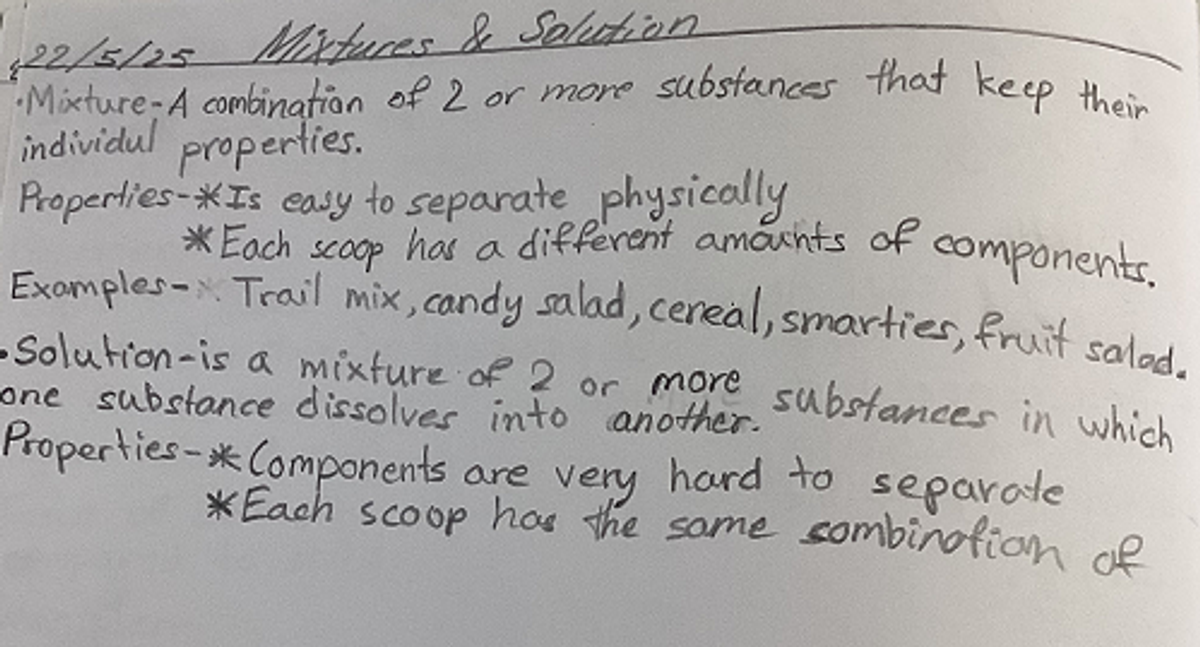 22/5/25 Mixtures & Solution
·Mixture-A combination of 2 or more substances that keep their
individul properties.
Properties-*Is easy to separate physically
*Each scoop has a different amounts of components.
Examples- Trail mix, candy salad, cereal, smarties, fruit salad.
·Solution-is a mixture of 2 or more substances in which
one substance dissolves into another.
Properties-*Components are very hard to separate
*Each scoop has the same sombination of